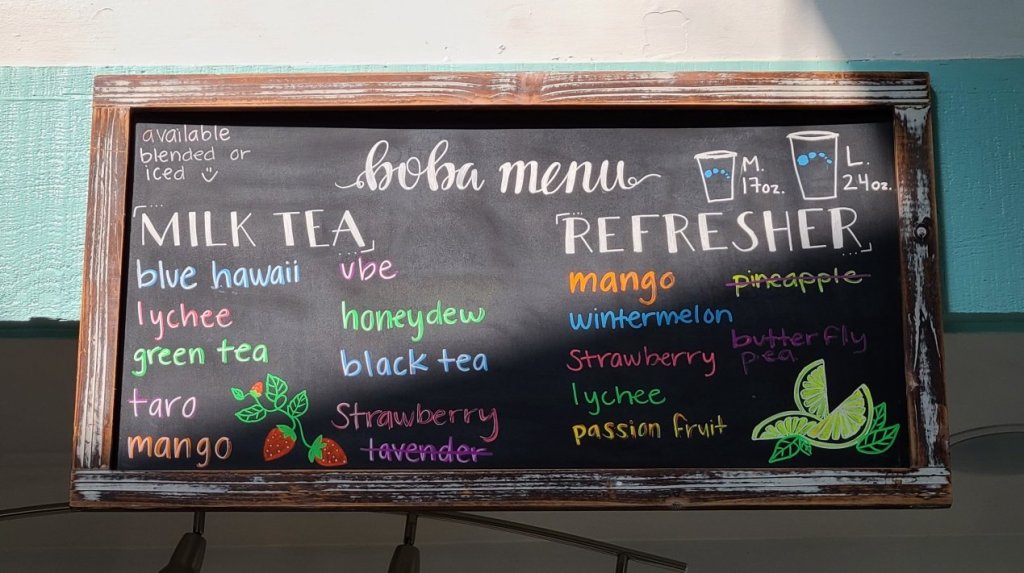 available
blended or
iced
boba menu
M.
17oz.
L.
24oz.
MILK TEA
blue hawaii
lychee
green tea
taro
mango
ube
honeydew
black tea
Strawberry
lavender
REFRESHER
mango
wintermelon
Strawberry
lychee
passion fruit
pineapple
butterfly
pea